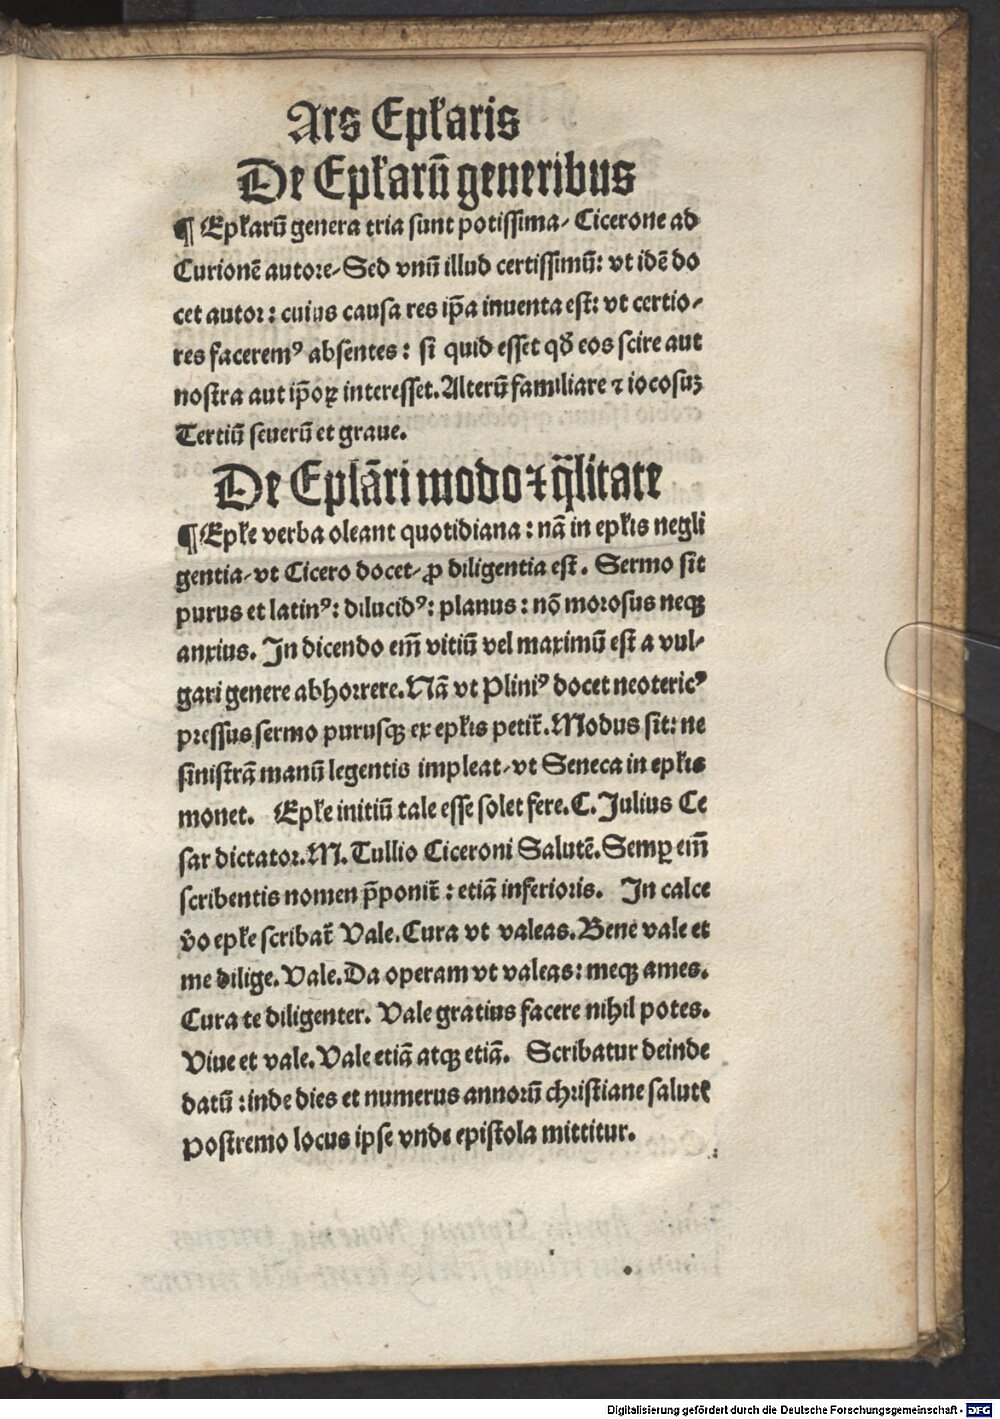 Ars Epłaris
De Epłarū generibus
¶ Epłarū genera tria sunt potissima/ Cicerone ad
Curionē autore/ Sed vnū illud certissimū: vt idē do
cet autor: cuius causa res ip̄a inuenta est: vt certio/
res faceremꝰ absentes: si quid esset qđ eos scire aut
nostra aut ip̄oꝝ interesset. Alterū familiare ⁊ iocosuꝫ
Tertiū seuerū et graue.
De Eplāri modo ⁊ q̄litate
¶ Epłe verba oleant quotidiana: nā in epłis negli
gentia/ vt Cicero docet/ ꝓ diligentia est. Sermo sit
purus et latinꝰ: dilucidꝰ: planus: nō morosus neqꝫ
anxius. In dicendo em̄ vitiū vel maximū est a vul/
gari genere abhorrere. Nā vt Pliniꝰ docet neotericꝰ
pressus sermo purusqꝫ ex epłis petit̄. Modus sit: ne
sinistrā manū legentis impleat/ vt Seneca in epłis
monet. Epłe initiū tale esse solet fere. C. Julius Ce
sar dictator. M. Tullio Ciceroni Salutē. Semꝑ em̄
scribentis nomen p̄ponit̄: etiā inferioris. In calce
v̄o epłe scribat̄ Vale. Cura vt valeas. Bene vale et
me dilige. Vale. Da operam vt valeas: meqꝫ ames.
Cura te diligenter. Vale gratius facere nihil potes.
Viue et vale. Vale etiā atqꝫ etiā. Scribatur deinde
datū: inde dies et numerus annorū christiane salutꝭ
Postremo locus ipse vnde epistola mittitur.
Digitalisierung gefördert durch die Deutsche Forschungsgemeinschaft - DFG